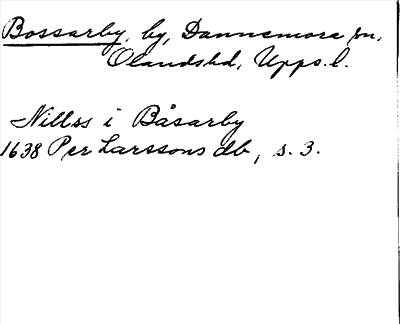 Bossarby, by, Dannemora sn,
Olandshd, Upps. l.
Nillss i Båsarby
1638 Per Larssons db, s. 3.